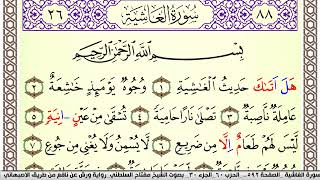 ٢٦ سُورَةُ الغَاشِيَةِ ٨٨
بِسْمِ اللَّهِ الرَّحْمَٰنِ الرَّحِيمِ
هَلَ اَتٰىكَ حَدِيثُ الْغَٰشِيَةِ ١ وُجُوهٌ يَوْمَئِذٍ خَٰشِعَةٌ ٢
عَامِلَةٌ نَّاصِبَةٌ ٣ تَصْلَىٰ نَارًا حَامِيَةً ٤ تُسْقَىٰ مِنْ عَيْنٍ اٰنِيَةٍ ٥
لَّيْسَ لَهُمْ طَعَامٌ اِلَّا مِن ضَرِيعٍ ٦ لَّا يُسْمِنُ وَلَا يُغْنِي مِن جُوعٍ ٧
سورة الغاشية . الصفحة ٥٩٢ . الحزب ٦٠ . الجزء ٣٠ . بصوت الشيخ مفتاح السلطني . رواية ورش عن نافع من طريق الاصبهاني